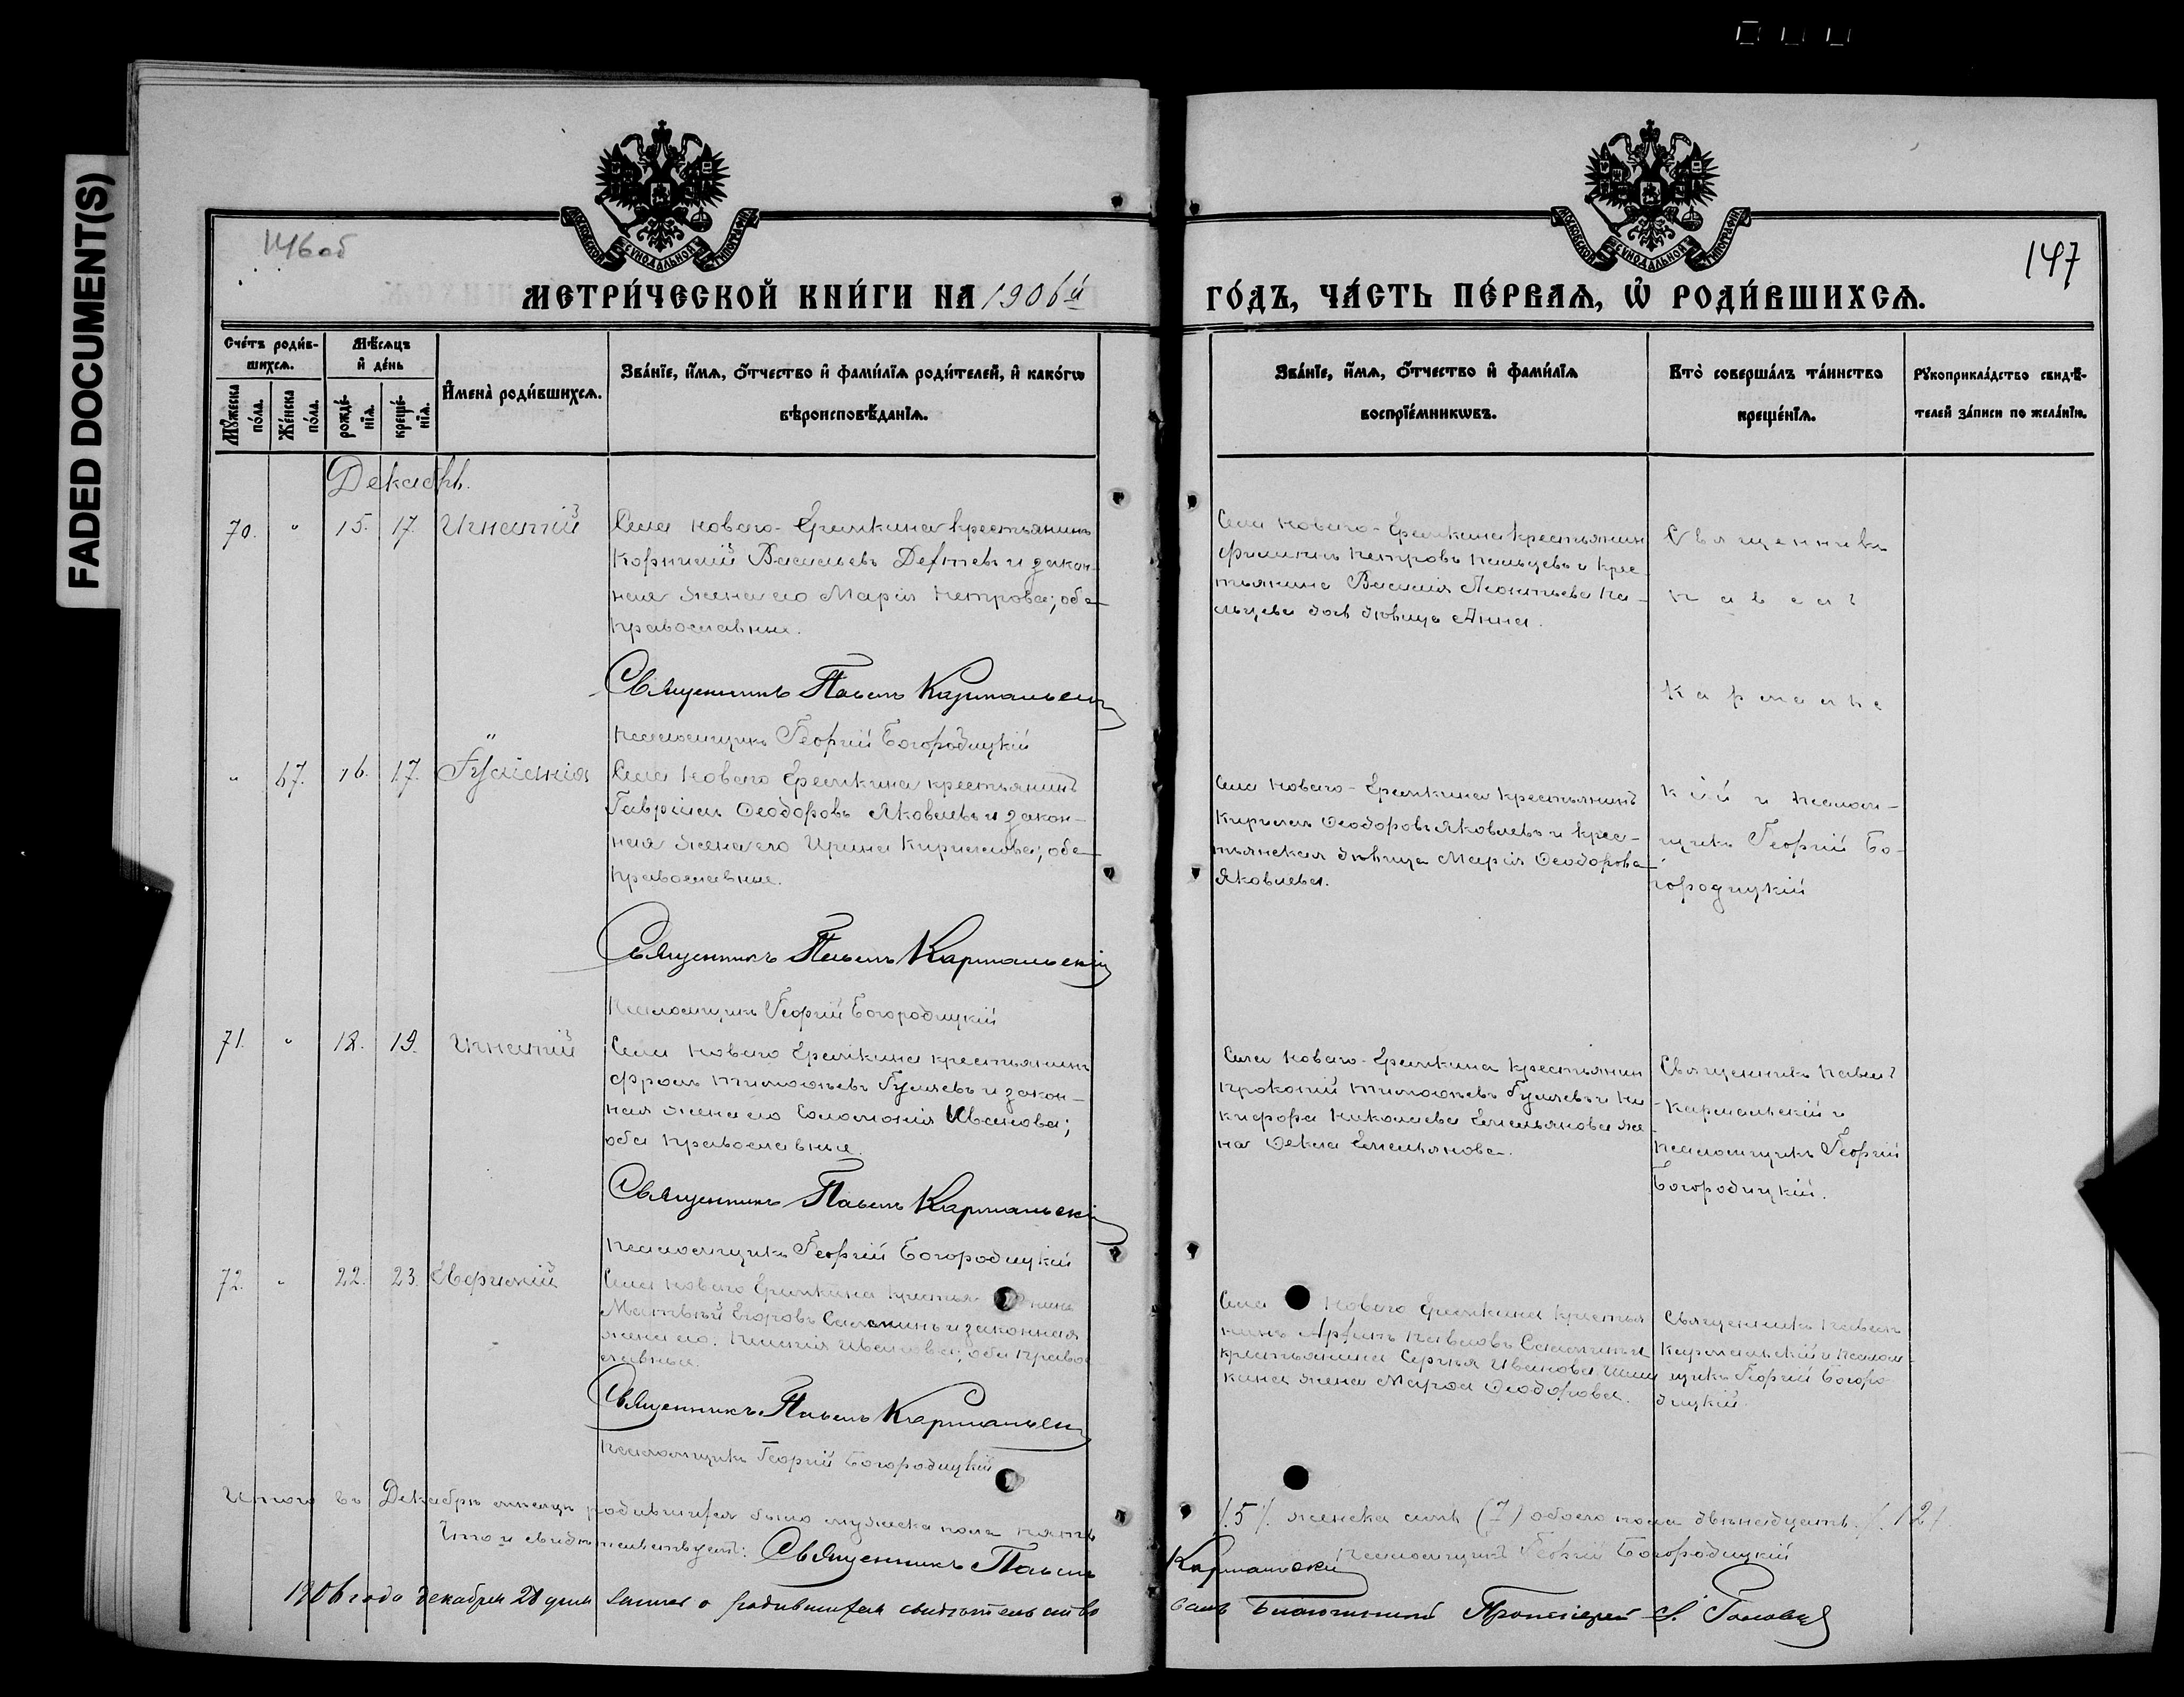 FADED DOCUMENT(S)
146 об
147
МОСКОВСКОЙ СѴНОДАЛЬНОЙ ТИПОГРАФІИ
МОСКОВСКОЙ СѴНОДАЛЬНОЙ ТИПОГРАФІИ
МЕТРИ́ЧЕСКОЙ КНИ́ГИ НА 1906й
ГО́ДЪ, ЧА́СТЬ ПЕ́РВАѦ, Ѡ҆ РОДИ́ВШИХСѦ.
Сче́тъ роди́в-
шихсѧ.
Мѹ́жеска по́ла.
Же́нска по́ла.
Мѣ́сѧцъ
и҆ де́нь
рожде́-
нїѧ.
креще́-
нїѧ.
И҆мена̀ роди́вшихсѧ.
Зва́нїе, и҆́мѧ, ѻ҆́тчество и҆ фами́лїѧ роди́телей, и҆ како́гѡ
вѣроисповѣ́данїѧ.
Зва́нїе, и҆́мѧ, ѻ҆́тчество и҆ фами́лїѧ
воспрїе́мникѡвъ.
Кто̀ соверша́лъ та́инство
креще́нїѧ.
Рꙋкоприкла́дство свидѣ́-
телей за́писи по жела́нїю.
Декабрь.
70. " 15. 17. Игнатій
Села Новаго-Еремкина крестьянинъ
Корнилій Васильевъ Дегтевъ и закон-
ная жена его Марія Петрова; оба
православные.
Священникъ Павелъ Кармальскій
Псаломщикъ Георгій Богородицкій
Села Новаго-Еремкина крестьянинъ
Филиппъ Петровъ Пальцевъ и крес-
тьянина Василія Леонтьева Па-
льцева дочь дѣвица Анна.
Священникъ
Павелъ
Кармальс
кій и псалом-
щикъ Георгій Бо-
городицкій
" 67. 16. 17. Іуліанія
Села Новаго Еремкина крестьянинъ
Гавріилъ Ѳеодоровъ Яковлевъ и закон-
ная жена его Ирина Кириллова; оба
православные.
Священникъ Павелъ Кармальскій
Псаломщикъ Георгій Богородицкій
Села Новаго-Еремкина крестьянинъ
Кириллъ Ѳеодоровъ Яковлевъ и крес-
тьянская дѣвица Марія Ѳеодорова
Яковлева.
71. " 18. 19. Игнатій
Села Новаго Еремкина крестьянинъ
Фролъ Тимоѳѣевъ Гуляевъ и закон-
ная жена его Соломонія Иванова;
оба православные.
Священникъ Павелъ Кармальскій
Псаломщикъ Георгій Богородицкій
Села Новаго-Еремкина крестьянин
Прокопій Тимоѳѣевъ Гуляевъ и Ни
кифора Николаева Емельянова же
на Ѳекла Емельянова.
Священникъ Павелъ
Кармальскій и
псаломщикъ Георгій
Богородицкій.
72. " 22. 23.
Села Новаго Еремкина крестья нинъ
Матвѣй Егоровъ Саломинъ и законная
жена его Иванова; оба право
славные.
Священникъ Павелъ Кармальскій
Псаломщикъ Георгій Богородицкій
Села Новаго Еремкина крестья
нинъ Павловъ Саломинъ и
крестьянина Сергѣя Иванова
кина жена Марѳа Ѳеодорова.
Священникъ Павелъ
Кармальскій и псалом-
щикъ Георгій Богоро
дицкій.
Итого въ Декабрѣ мѣсяцѣ родившихся было мужеска пола пять /.5/. женска семь (7) обоего пола двѣнадцать. /.12/
Что и свидѣтельствуетъ: Священникъ Павелъ Кармальскій Псаломщикъ Георгій Богородицкій
1906 года декабря 28 дня записи о родившихся свидѣтельство валъ Благочинный Протоіерей